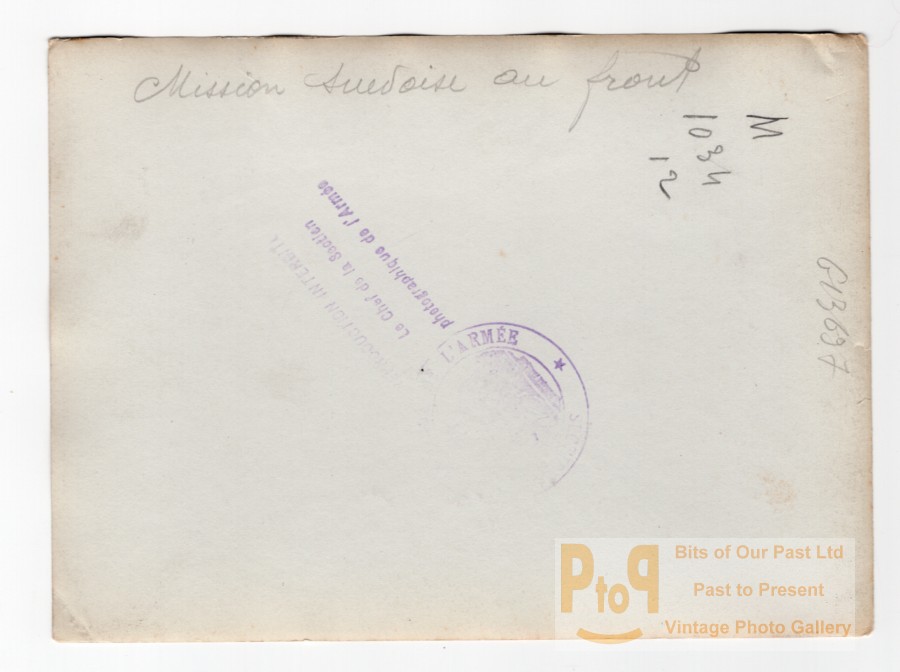 Mission Suedoise au front
M
1034
12
P13697
REPRODUCTION INTERDITE
Le Chef de la Section
photographique de l'Armée
L'ARMÉE ★
PtoP
Bits of Our Past Ltd
Past to Present
Vintage Photo Gallery